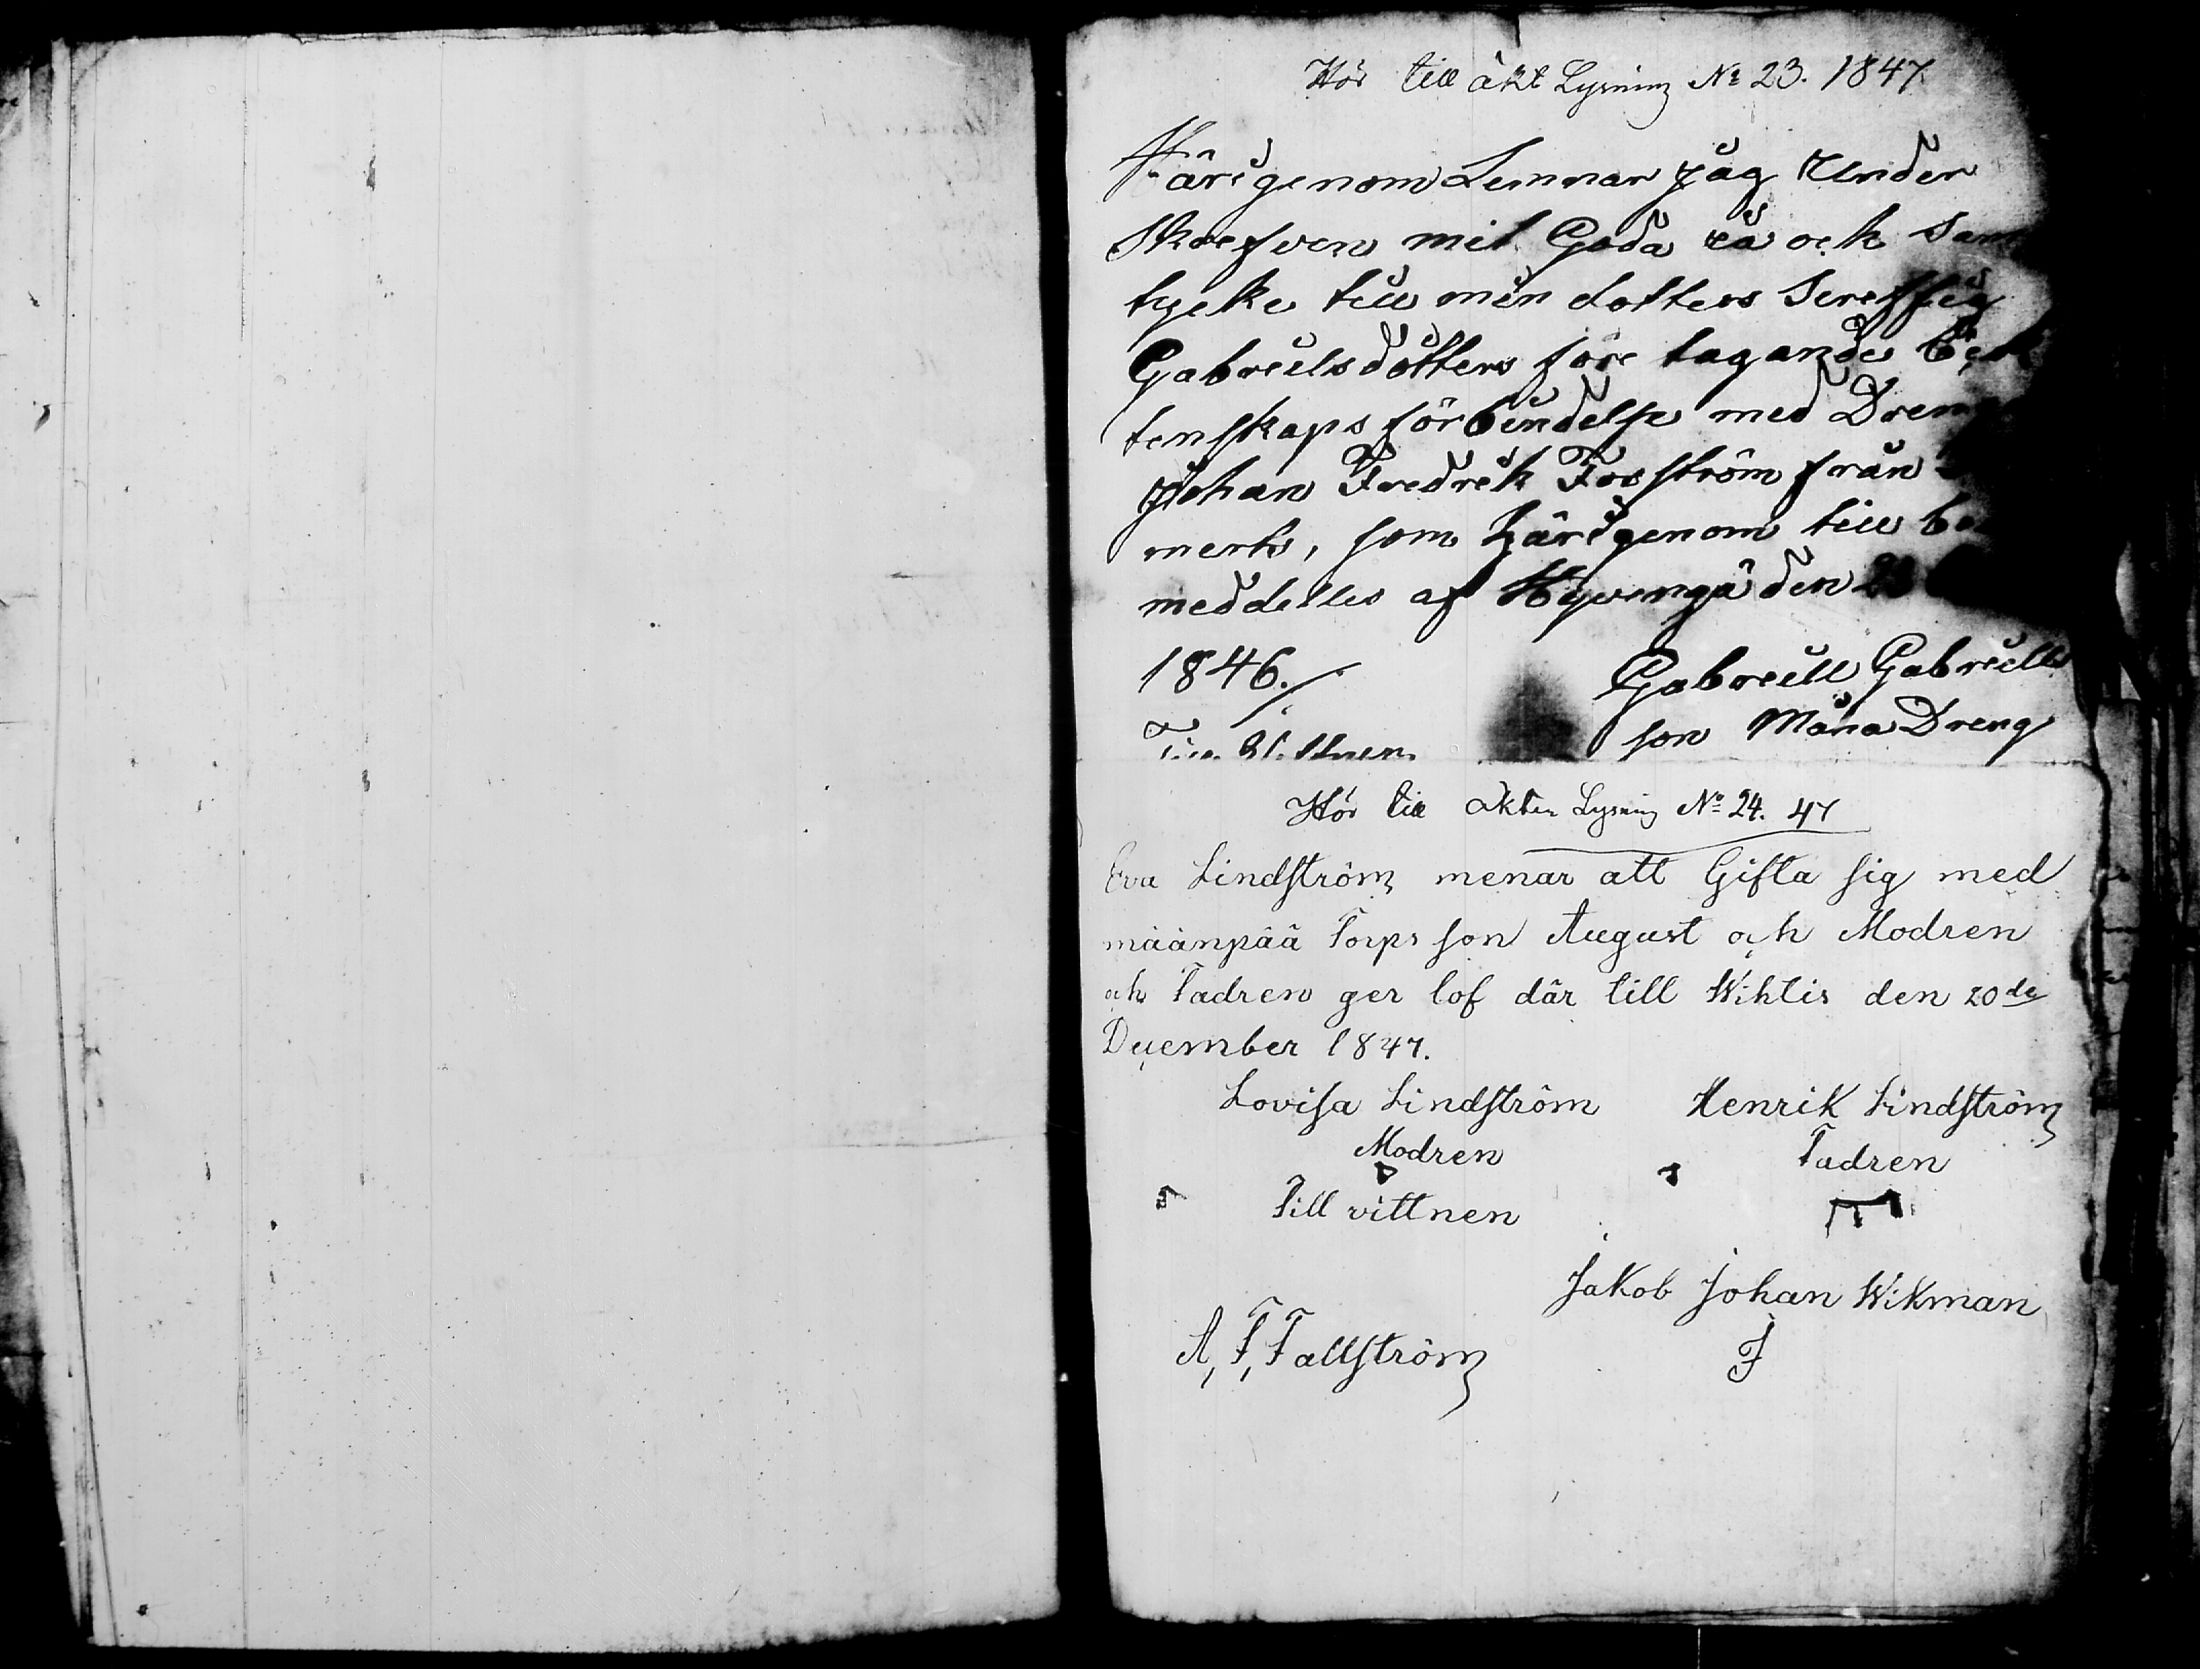 Hör till åkt Lysning No 23. 1847.
Härigenom Lemnar jag Under
skrefven mit Goda rå och Sam
tycke till min dotters Sereffia
Gabrielsdotters före tagande Eck
tenskaps förbindelse med Dreng
Johan Fredrik Forsström från
merto, som härigenom till be
meddelles af Hyvengä den 28
1846./.
Gabriell Gabriells
son Måna Dreng
Till Vittnen
Hör till Akten Lysning No 24. 47
Eva Lindström menar att Gifta sig med
määnpää Torps son August och Modren
och Fadren ger lof där till Wihtis den 20de
December 1847.
Lovisa Lindström Henrik Lindström
Modren Fadren
Till vittnen
Jakob Johan Wikman
A, F, Fallström J